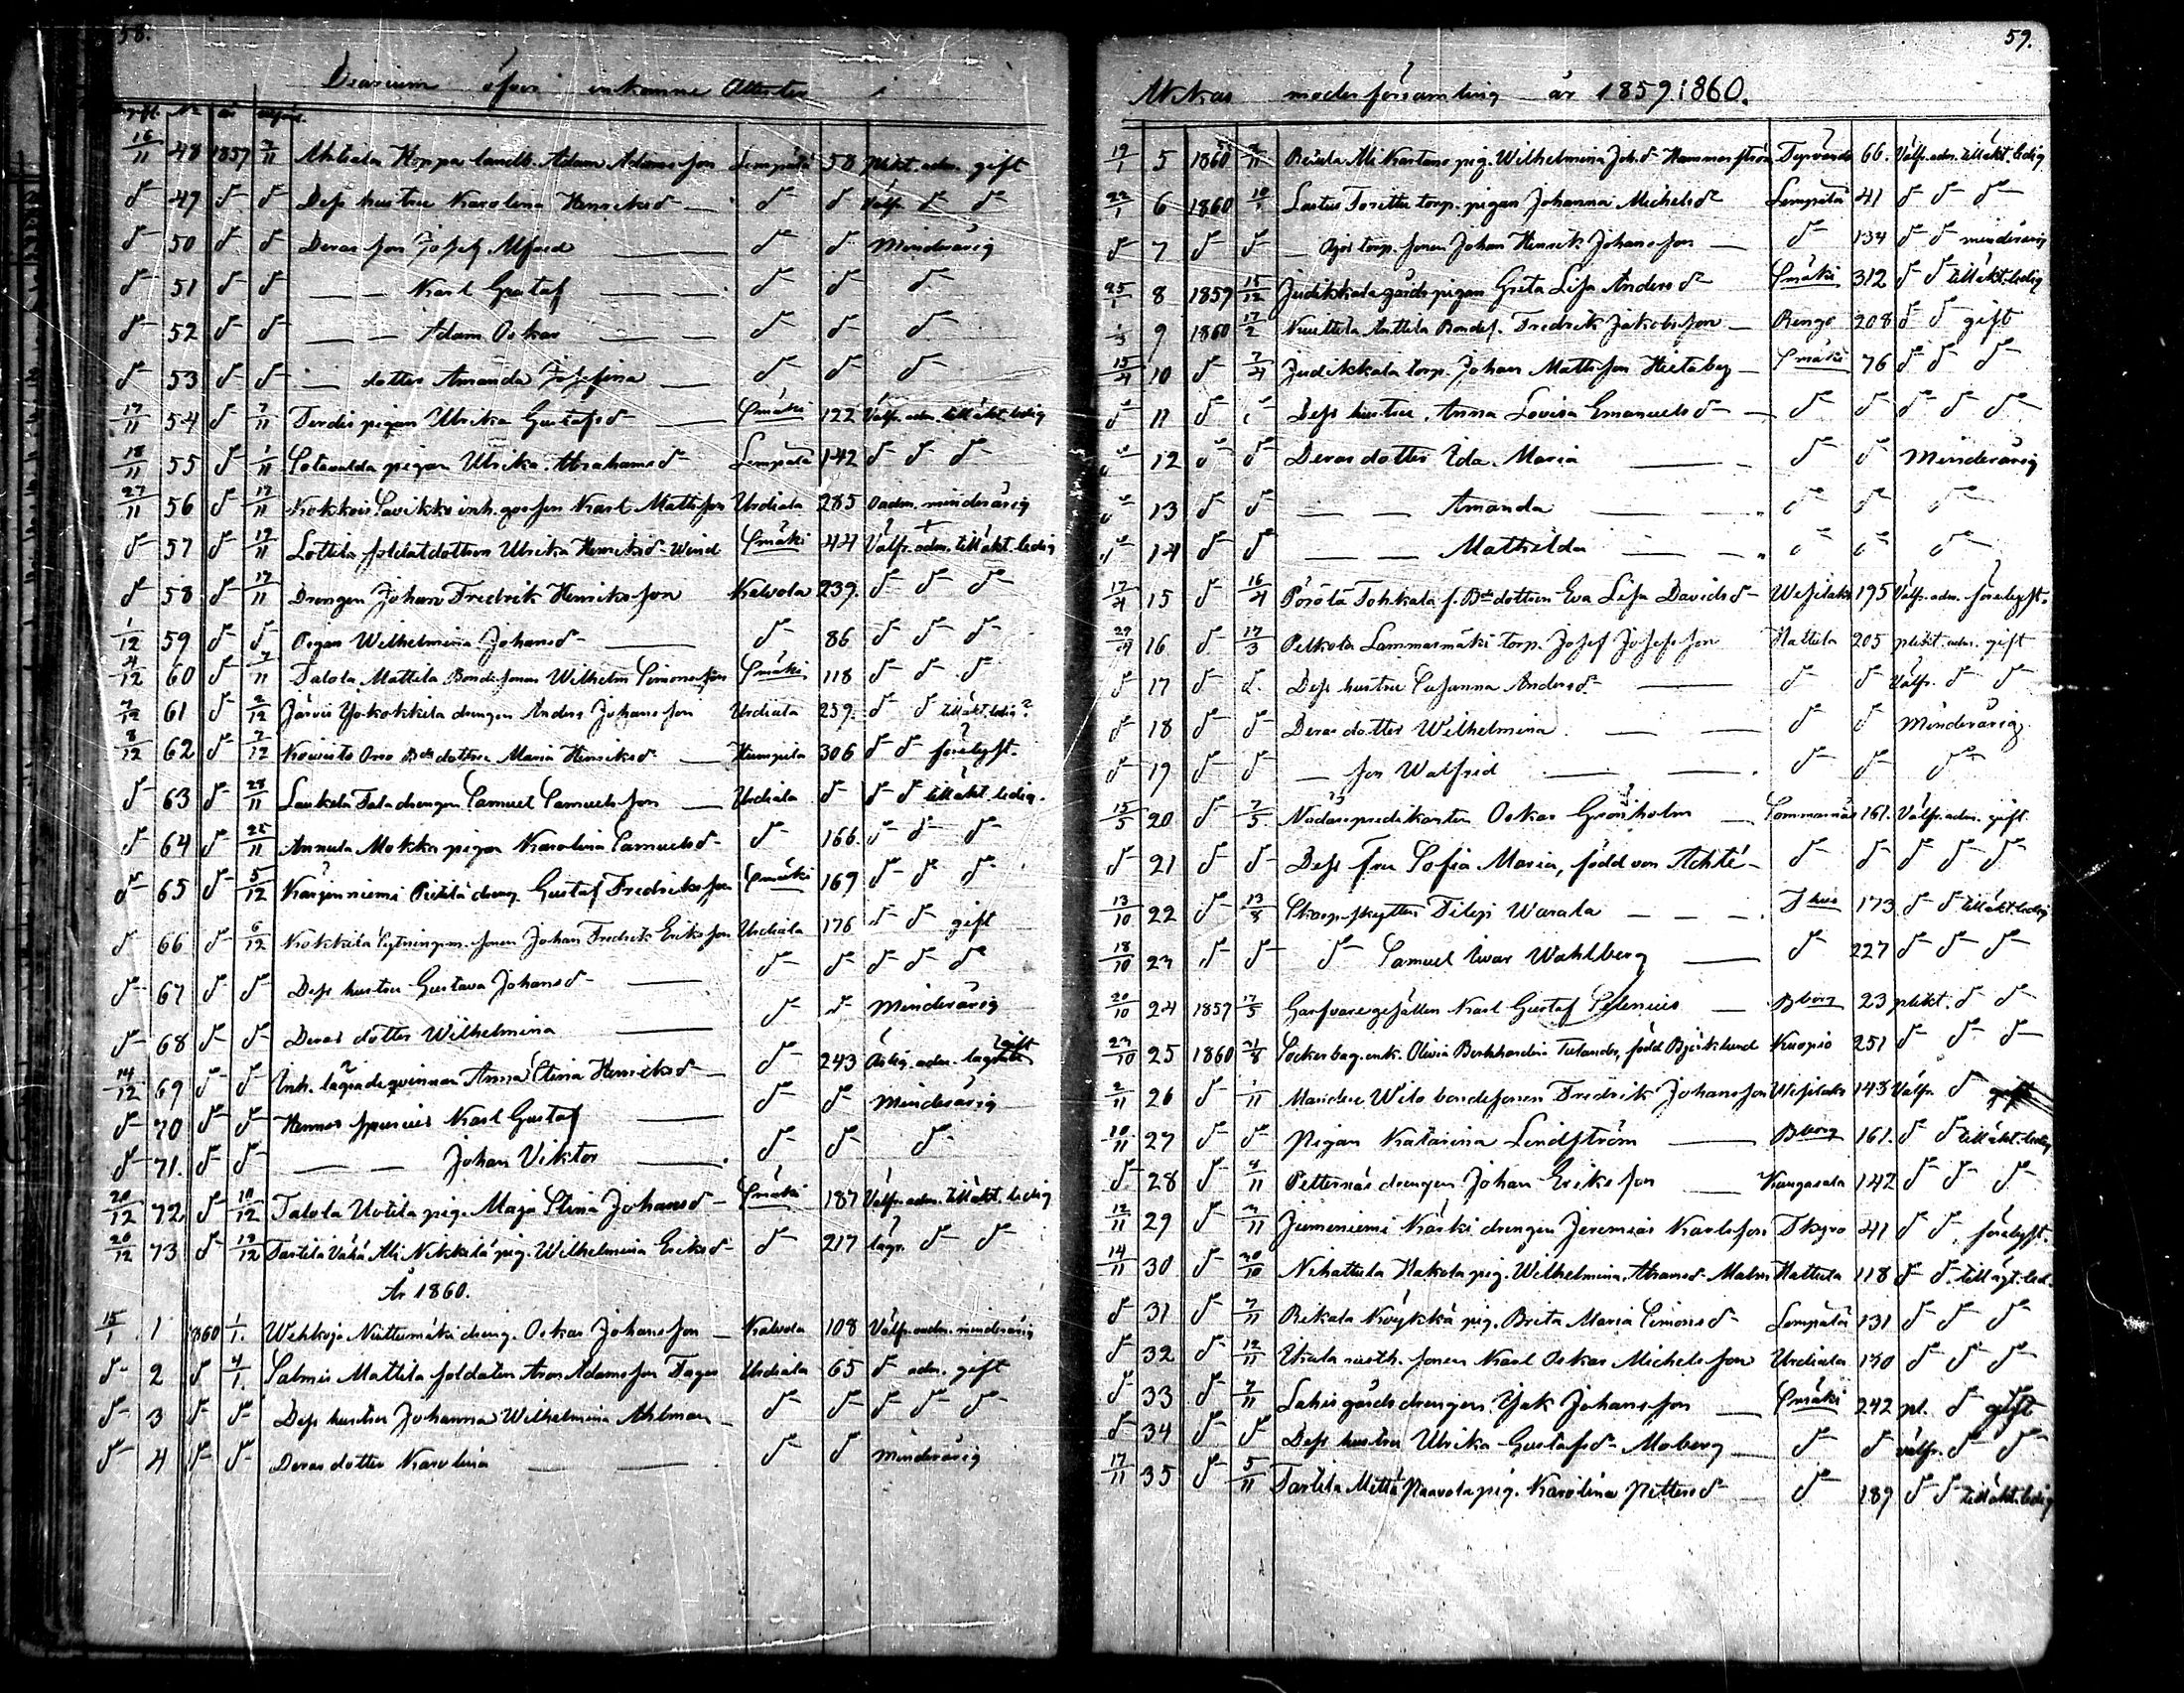 58.
Diarium öfver inkomne Attester i
16/11 48 1857 7/11 Ahtiala Hoppa landb. Adam Adamsson Lempälä 58 plikt. adm. gift
d:o 49 d:o d:o Dess hustru Karolina Henriksd:r — d:o d:o Välfr. d:o d:o
d:o 50 d:o d:o Deras son Josef Alfred — d:o d:o Minderårig
d:o 51 d:o d:o — — Karl Gustaf — — d:o d:o d:o
d:o 52 d:o d:o — — Adam Oskar — d:o d:o d:o
d:o 53 d:o d:o — dotter Amanda Josefina — d:o d:o d:o
17/11 54 d:o 7/11 pigan Ulrika Gustafsd:r — Smäki 122 Välfr. adm. till äkt. ledig
18/11 55 d:o 1/11 Sotavalda pigan Ulrika Abrahamsd:r Lempälä 142 d:o d:o d:o
27/11 56 d:o 17/11 Kokkois Lavikko inh. gosson Karl Mattsson Urdiala 285 Oadm. minderårig
d:o 57 d:o 19/11 Lottila soldatdottren Ulrika Henriksd:r Wind Smäki 44 Välfr. adm. till äkt. ledig
d:o 58 d:o 17/11 Drengen Johan Fredrik Henriksson Kalvola 239. d:o d:o d:o
1/12 59 d:o d:o Pigan Wilhelmina Johansd:r — d:o 86 d:o d:o d:o
4/12 60 d:o 7/11 Talola Mattila Bondesonen Wilhelm Simonsson Smäki 118 d:o d:o d:o
7/12 61 d:o 2/12 Järvis Yokokkila drengen Anders Johansson Urdiala 259. d:o d:o till äkt. ledig?
8/12 62 d:o 7/12 Koivisto Orso Bde dottren Maria Henriksd:r — Humpila 306 d:o d:o förelyst.
d:o 63 d:o 28/11 Laukela Tala drengen Samuel Samuelsson — Urdiala d:o d:o d:o till äkt ledig.
d:o 64 d:o 25/11 Annula Mokka pigan Karolina Samuelsd:r d:o 166. d:o d:o d:o
d:o 65 d:o 5/12 Karjenniemi Pietilä dreng. Gustaf Fredriksson Smäki 169 d:o d:o d:o
d:o 66 d:o 6/12 Kokkila sytningsm. sonen Johan Fredrik Eriksson Urdiala 176 d:o d:o gift
d:o 67 d:o d:o Dess hustru Gustava Johansd:r — d:o d:o d:o d:o d:o
d:o 68 d:o d:o Deras dotter Wilhelmina — d:o d:o Minderårig
14/12 69 d:o d:o Inh. lägrade qvinnan Anna Stina Henriksd:r d:o 243 adm. gift
d:o 70 d:o d:o Hennes spurius Karl Gustaf — d:o d:o Minderårig
d:o 71. d:o d:o — — Johan Viktor — d:o d:o d:o
20/12 72 d:o 10/12 Talola Uotila pig. Maja Stina Johansd:r Smäki 187 Välfr. adm. till äkt. ledig
20/12 73 d:o 19/12 Tartila Vähä Ali Nikkilä pig. Wilhelmina Eriksd:r d:o 217 lägr. d:o d:o
År 1860.
15/1 1 1860 1/1. Wehkoja Niittumäki dreng. Oskar Johansson — Kalvola 108 Välfr. oadm. minderårig
d:o 2 d:o 4/1. Salmis Mattila soldaten Aron Adamsson Fager Urdiala 65 d:o adm. gift
d:o 3 d:o d:o Dess hustru Johanna Wilhelmina Ahlman — d:o d:o d:o d:o d:o
d:o 4 d:o d:o Deras dotter Karolina — — d:o d:o minderårig
59.
Akkas moderförsamling år 1859. 1860.
19/1 5 1860 Ali Kartano pig. Wilhelmina Joh.d:r Hammarström Tyrvändö 66. Välfr. adm. till äkt. ledig
22/1 6 1860 Lastus Torittu torp. pigan Johanna Michelsd:r Lempälä 41 d:o d:o d:o
d:o 7 d:o d:o — torp. sonen Johan Henrik Johansson — d:o 134 d:o d:o minderårig
25/1 8 1859 15/12 Judikkala gårds pigan Greta Lisa Andersd:r Smäki 312 d:o d:o till äkt. ledig
9 1860 17/2 Niuttila Anttila Bondes. Fredrik Jakobsson — Rengo 208 d:o d:o gift
15/4 10 d:o 7/4 Judikkala torp. Johan Mattsson Hietaberg — Smäki 76 d:o d:o d:o
d:o 11 d:o d:o Dess hustru Anna Lovisa Emanuelsd:r — d:o d:o d:o d:o d:o
d:o 12 d:o d:o Deras dotter Ida Maria — — d:o d:o Minderårig
d:o 13 d:o d:o — — Amanda — — d:o d:o d:o
d:o 14 d:o d:o — — Mathilda — — d:o d:o d:o
17/4 15 d:o 16/4 Pörölä Tohkala f. Bde dottren Eva Lisa Davidsd:r Wesilaks 195 Välfr. adm. förelyst.
29/4 16 d:o 17/3 Pelkola Lammasmäki torp. Josef Josefsson Hattula 205 plikt. adm. gift
d:o 17 d:o d:o Dess hustru Susanna Andersd:r — d:o d:o Välfr. d:o d:o
d:o 18 d:o d:o Deras dotter Wilhelmina — — d:o d:o Minderårig
d:o 19 d:o d:o — son Walfrid — — d:o d:o d:o
15/5 20 d:o 7/5 Nådårspredikanten Oskar Grönholm — Sommarnäs 161. Välfr. adm. gift.
d:o 21 d:o d:o Dess Fru Sofia Maria, född von Achté — d:o d:o d:o d:o d:o
13/10 22 d:o 13/8 Skarpskytten Filip Warala — — — Thus 173 d:o d:o till äkt. ledig
18/10 23 d:o d:o d:o Samuel Ivar Wahlberg — d:o 227 d:o d:o d:o
20/10 24 1857 17/5 Garfvaregesällen Karl Gustaf Selenius — Bborg 23 plikt. d:o d:o
23/10 25 1860 21/8 Sockerbag. enk. Olivia Bernhardin Tulander, född Björklund Kuopio 251 d:o d:o d:o
2/11 26 d:o 1/11 Wilo bondesonen Fredrik Johansson Wesilaks 148 Välfr. d:o gift
10/11 27 d:o d:o Pigan Katarina Lindström — Bborg 161. d:o d:o till äkt. ledig
d:o 28 d:o 4/11 Petternäs drengen Johan Eriksson — Kangasala 142 d:o d:o d:o
12/11 29 d:o 7/11 Jumeniemi Käski drengen Jeremias Karlsson Tkyro 41 d:o d:o förelyst.
14/11 30 d:o 20/10 Nihattula Hakola pig. Wilhelmina Abramsd:r Malm Hattula 118 d:o d:o till ägt. led.
d:o 31 d:o 7/11 Rikala Kröykkä pig. Brita Maria Simonsd:r Lempälä 131 d:o d:o d:o
d:o 32 d:o 12/11 Ukala rusth. sonen Karl Oskar Michelsson Urdiala 130 d:o d:o d:o
d:o 33 d:o 7/11 Lahis gårds drengen Isak Johansson — Smäki 242 pl. d:o gift
d:o 34 d:o d:o Dess hustru Ulrika Gustafsd:r Moberg — d:o d:o välfr. d:o d:o
17/11 35 d:o 5/11 Tartila Mittä Paavola pig. Karolina Pettersd:r — d:o 189 d:o d:o till äkt. ledig